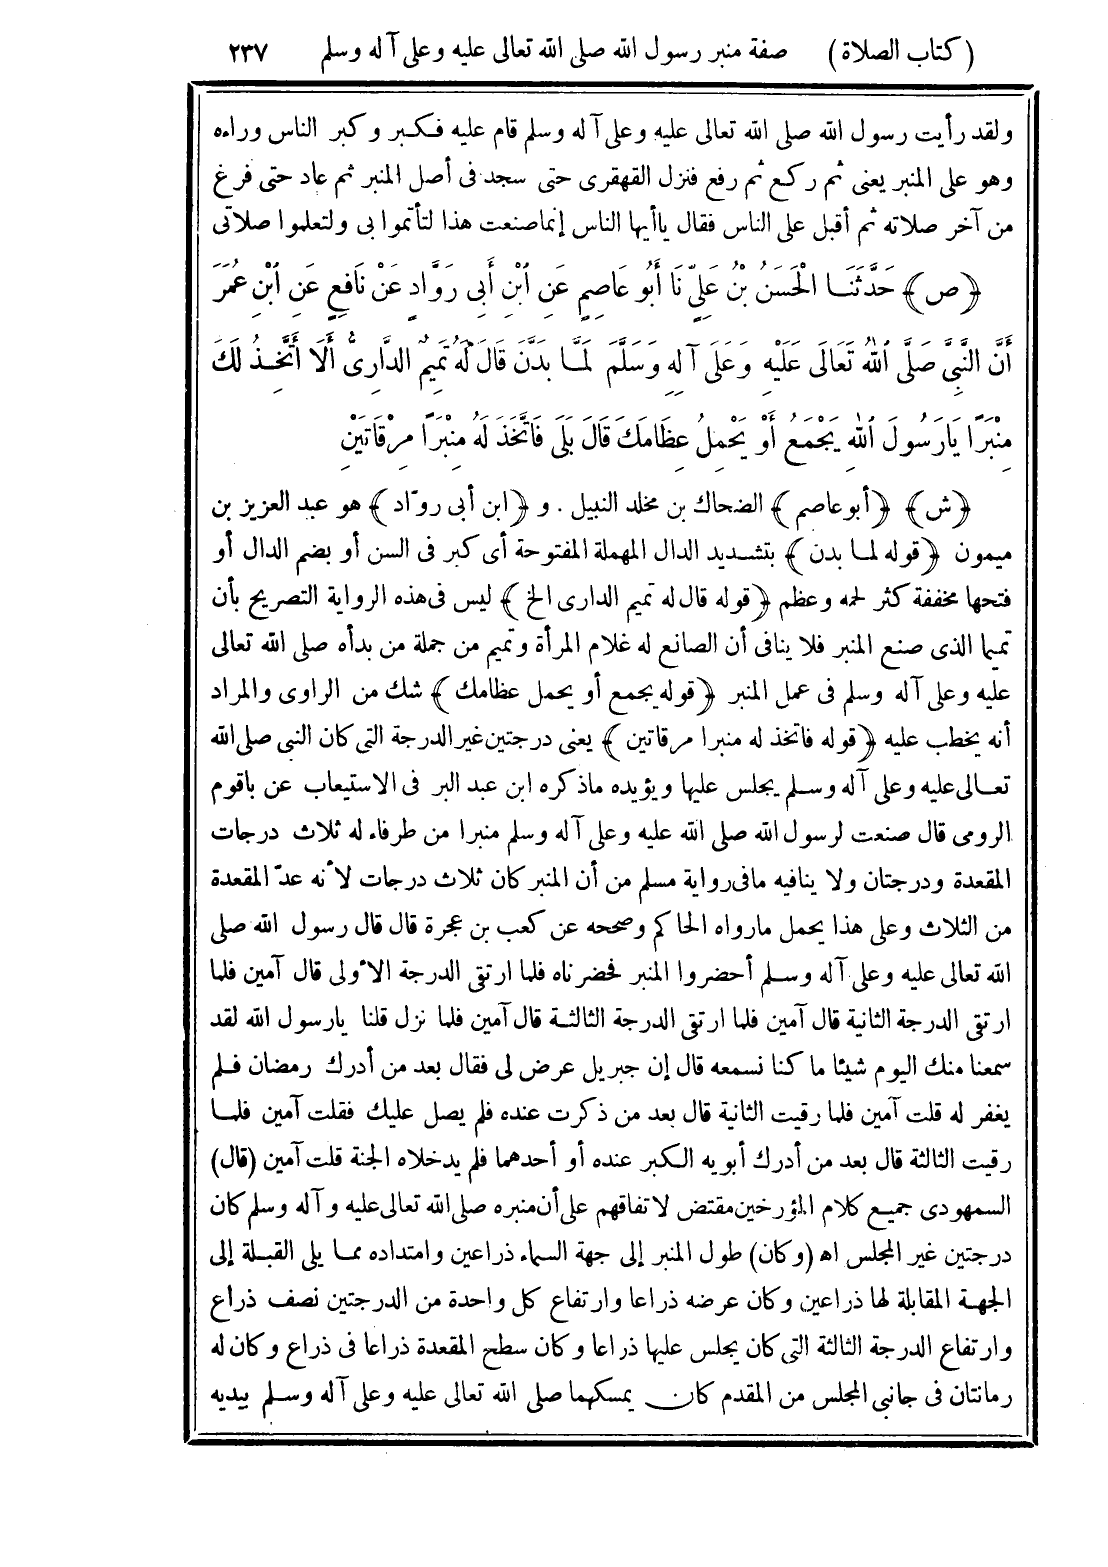 (كتاب الصلاة) صفة منبر رسول الله صلى الله تعالى عليه وعلى آله وسلم ٢٣٧
ولقد رأيت رسول الله صلى الله تعالى عليه وعلى آله وسلم قام عليه فكبر وكبر الناس وراءه
وهو على المنبر يعنى ثم ركع ثم رفع فنزل القهقرى حتى سجد فى أصل المنبر ثم عاد حتى فرغ
من آخر صلاته ثم أقبل على الناس فقال ياأيها الناس إنما صنعت هذا لتأتموا بى ولتعلموا صلاتى
﴿ص﴾ حَدَّثَنَا الْحَسَنُ بْنُ عَلِيٍّ نَا أَبُو عَاصِمٍ عَنِ ابْنِ أَبِى رَوَّادٍ عَنْ نَافِعٍ عَنِ ابْنِ عُمَرَ
أَنَّ النَّبِيَّ صَلَّى اللهُ تَعَالَى عَلَيْهِ وَعَلَى آلِهِ وَسَلَّمَ لَمَّا بَدَّنَ قَالَ لَهُ تَمِيمٌ الدَّارِىُّ أَلَا أَتَّخِذُ لَكَ
مِنْبَرًا يَارَسُولَ اللهِ يَجْمَعُ أَوْ يَحْمِلُ عِظَامَكَ قَالَ بَلَى فَاتَّخَذَ لَهُ مِنْبَرًا مِرْقَاتَيْنِ
﴿ش﴾ ﴿أبو عاصم﴾ الضحاك بن مخلد النبيل . و ﴿ابن أبى روّاد﴾ هو عبد العزيز بن
ميمون ﴿قوله لما بدن﴾ بتشديد الدال المهملة المفتوحة أى كبر فى السن أو بضم الدال أو
فتحها مخففة كثر لحمه وعظم ﴿قوله قال له تميم الدارى الخ﴾ ليس فى هذه الرواية التصريح بأن
تميما الذى صنع المنبر فلا ينافى أن الصانع له غلام المرأة وتميم من جملة من بدأه صلى الله تعالى
عليه وعلى آله وسلم فى عمل المنبر ﴿قوله يجمع أو يحمل عظامك﴾ شك من الراوى والمراد
أنه يخطب عليه ﴿قوله فاتخذ له منبرا مرقاتين﴾ يعنى درجتين غير الدرجة التى كان النبى صلى الله
تعالى عليه وعلى آله وسلم يجلس عليها ويؤيده ماذكره ابن عبد البر فى الاستيعاب عن باقوم
الرومى قال صنعت لرسول الله صلى الله عليه وعلى آله وسلم منبرا من طرفاء له ثلاث درجات
المقعدة ودرجتان ولا ينافيه مافى رواية مسلم من أن المنبر كان ثلاث درجات لأنه عدّ المقعدة
من الثلاث وعلى هذا يحمل مارواه الحاكم وصححه عن كعب بن عجرة قال قال رسول الله صلى
الله تعالى عليه وعلى آله وسلم أحضروا المنبر فحضرناه فلما ارتقى الدرجة الأولى قال آمين فلما
ارتقى الدرجة الثانية قال آمين فلما ارتقى الدرجة الثالثة قال آمين فلما نزل قلنا يارسول الله لقد
سمعنا منك اليوم شيئا ما كنا نسمعه قال إن جبريل عرض لى فقال بعد من أدرك رمضان فلم
يغفر له قلت آمين فلما رقيت الثانية قال بعد من ذكرت عنده فلم يصل عليك فقلت آمين فلما
رقيت الثالثة قال بعد من أدرك أبويه الكبر عنده أو أحدهما فلم يدخلاه الجنة قلت آمين (قال)
السمهودى جميع كلام المؤرخين مقتض لاتفاقهم على أن منبره صلى الله تعالى عليه وآله وسلم كان
درجتين غير المجلس اه (وكان) طول المنبر إلى جهة السماء ذراعين وامتداده مما يلى القبلة إلى
الجهة المقابلة لها ذراعين وكان عرضه ذراعا وارتفاع كل واحدة من الدرجتين نصف ذراع
وارتفاع الدرجة الثالثة التى كان يجلس عليها ذراعا وكان سطح المقعدة ذراعا فى ذراع وكان له
رمانتان فى جانبى المجلس من المقدم كان يمسكهما صلى الله تعالى عليه وعلى آله وسلم بيديه